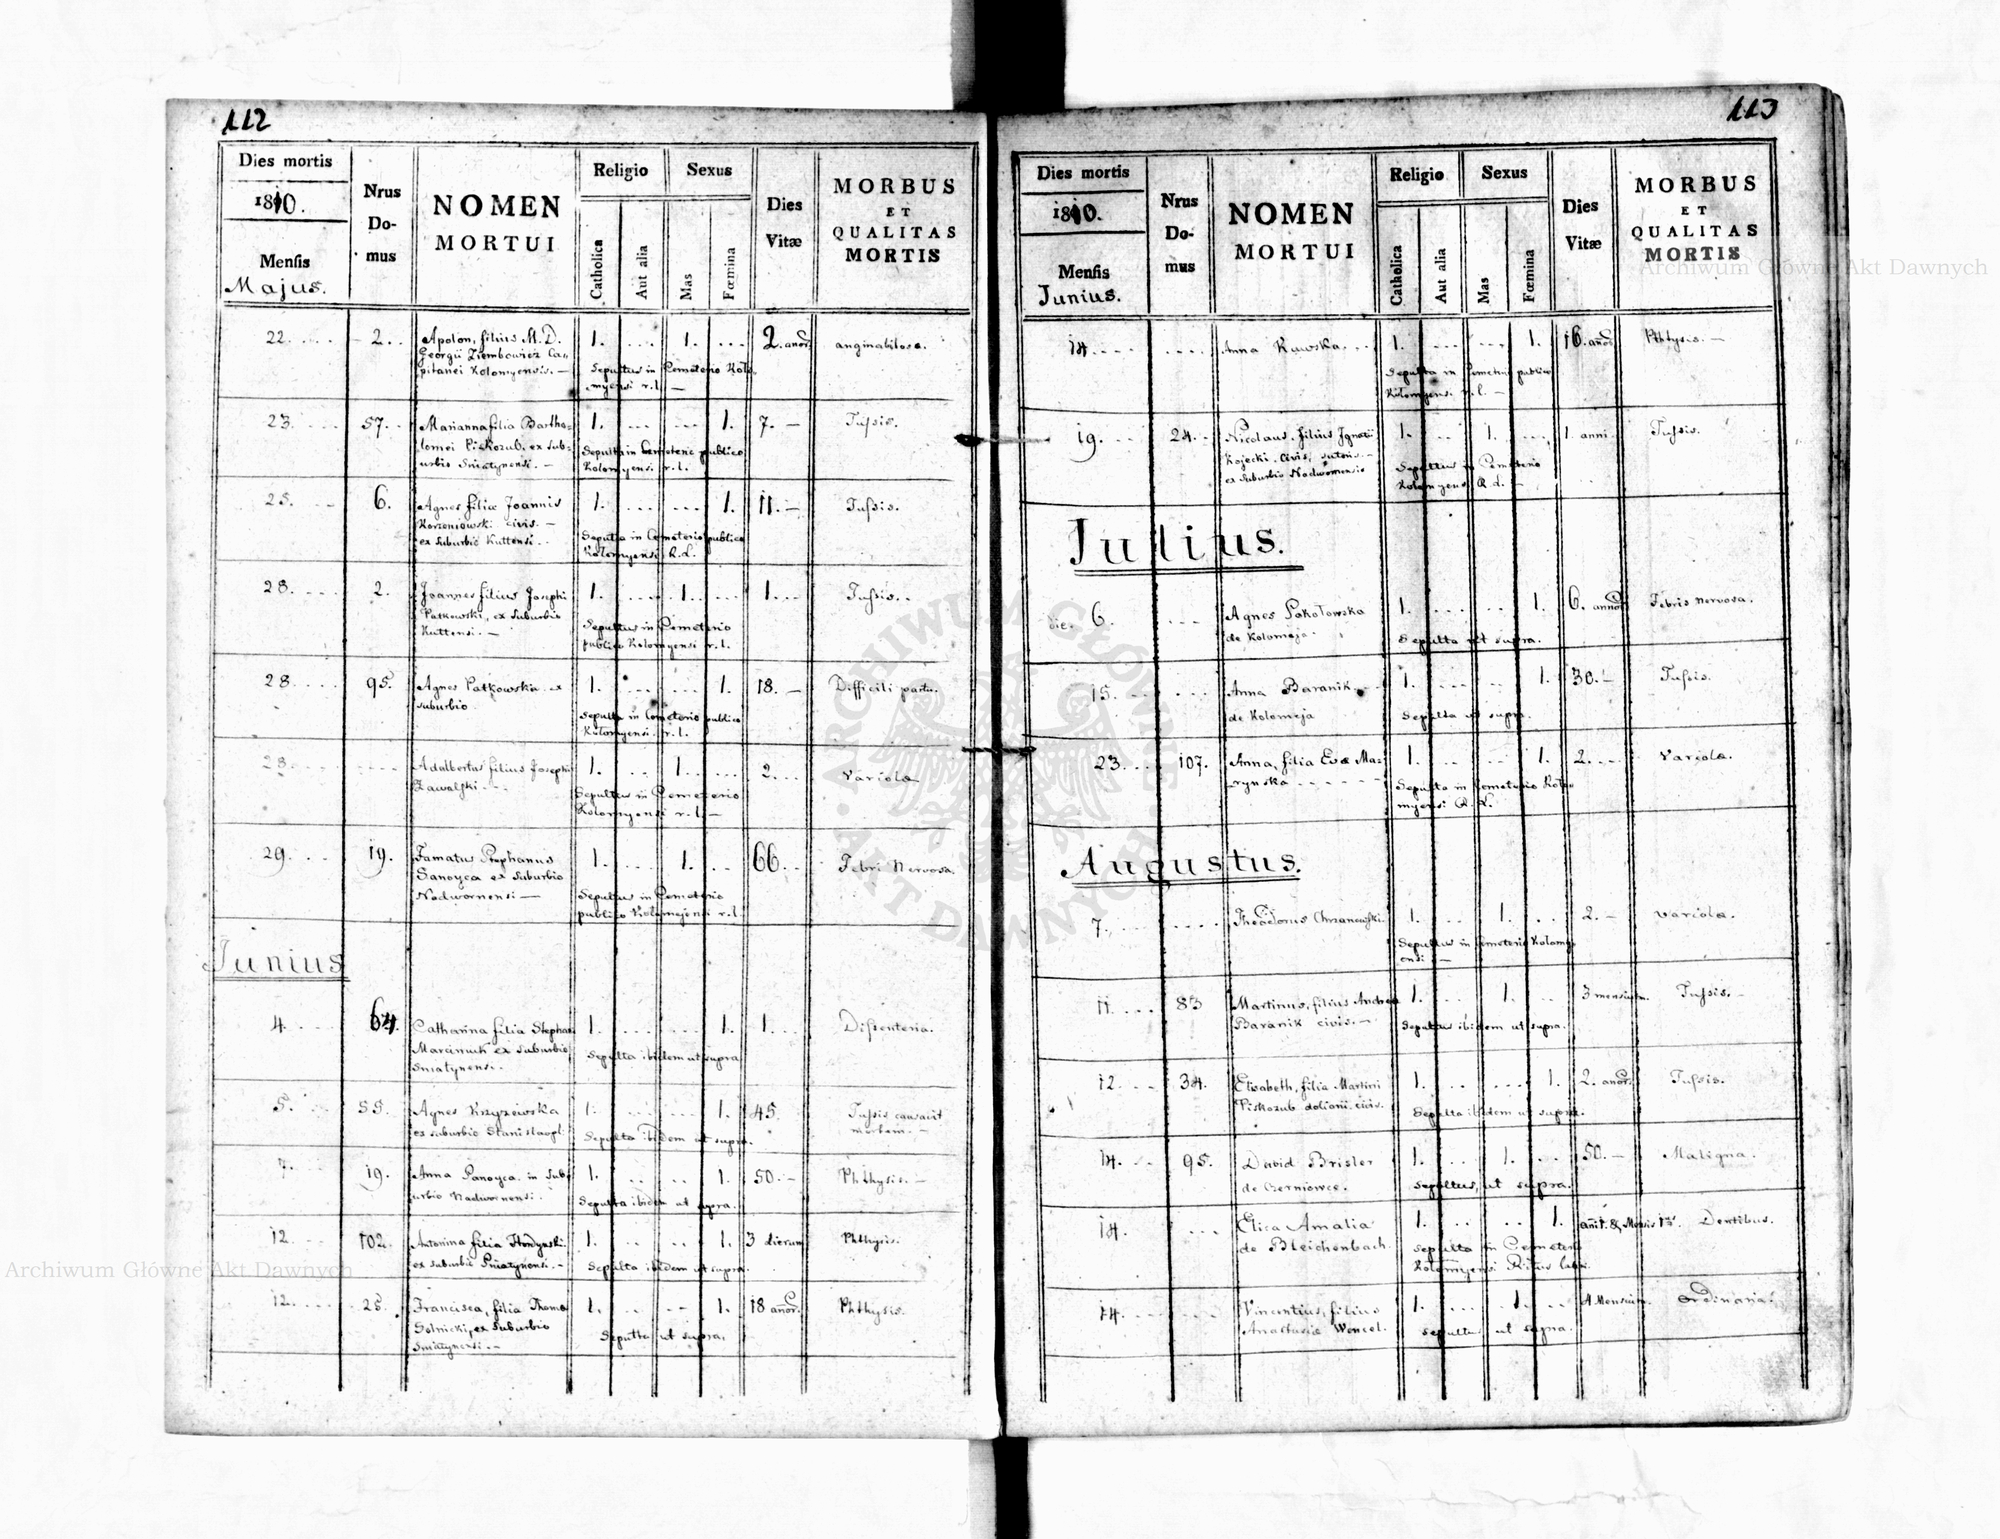 112
Dies mortis
1810.
Mensis
Majus.
Nrus
Do-
mus
NOMEN
MORTUI
Religio
Catholica
Aut alia
Sexus
Mas
Fœmina
Dies
Vitæ
MORBUS
ET
QUALITAS
MORTIS
22. 2. Apolon, filius M. D. 1. 1. 2. anor. anginabilosa.
Georgii Ziembowicz Ca-
pitanei Kolomyensis. —
Sepultus in Cemeterio Kolo
myensi r. l. —
23. 57. Marianna filia Bartho- 1. 1. 7. — Tussis.
lomei Piskozub, ex sub-
urbio Sniatynensi. —
Sepulta in Cemeterio publico
Kolomyensi r. l.
25. 6. Agnes filia Joannis 1. 1. 11. — Tussis.
Korzeniowski civis. —
ex suburbio Kuttensi. .
Sepulta in Cemeterio publico
Kolomyensi R. L.
28. 2. Joannes filius Josephi 1. 1. 1. Tussis.
Patkowski, ex suburbio
Kuttensi. —
Sepultus in Cemeterio
publico Kolomyensi r. l.
28. 95. Agnes Patkowska ex 1. 1. 18. — Difficili partu.
suburbio
Sepulta in Cemeterio publico
Kolomyensi. r. l.
28. Adalbertus filius Josephi 1. 1. 2. Variola
Zawalski.
Sepultus in Cemeterio
Kolomyensi r. l. —
29. 19. Famatus Stephanus 1. 1. 66. Febri Nervosa.
Sanoyca ex suburbio
Nadwornensi —
Sepultus in Cemeterio
publico Kolomejensi r. l.
Junius
4. 64. Catharina filia Stephani 1. 1. 1. Dissenteria.
ex suburbio
Sniatynensi.
Sepulta ibidem ut supra
5. 55. Agnes Krzyzewska 1. 1. 45. Tussis causavit
ex suburbio Stanislaopl. mortem. —
Sepulta ibidem ut supra.
7. 19. Anna Panoyca in sub- 1. 1. 50. — Phthysis. —
urbio Nadwornensi.
Sepulta ibidem ut supra.
12. 102. Antonina filia 1. 1. 3 dierum Phthysis.
ex suburbio Sniatynensi. —
Sepulta ibidem ut supra.
12. 25. Francisca, filia Thoma 1. 1. 18 anor. Phthysis.
Solnicki, ex suburbio
Sniatynensi. —
Sepulta ut supra,
113
Dies mortis
1810.
Mensis
Junius.
Nrus
Do-
mus
NOMEN
MORTUI
Religio
Catholica
Aut alia
Sexus
Mas
Fœmina
Dies
Vitæ
MORBUS
ET
QUALITAS
MORTIS
14. Anna Kuwska. 1. 1. 16. anor Phtysis. —
Sepulta in Cemeterio publico
Kolomyens. r. l. —
19. 24. Nicolaus, filius Ignatii 1. 1. 1. anni Tussis.
Kojecki. civis, sutoris. —
ex suburbio Nadwornensis
Sepultus in Cemeterio
Kolomyens R. L. —
Julius.
die. 6. Agnes Sokołowska 1. 1. 6. annor Febris nervosa.
de Kolomeja.
Sepulta ut supra.
15. Anna Baranik. 1. 1. 30. — Tussis.
de Kolomeja
Sepulta ut supra.
23. 107. Anna, filia Evæ Ma- 1. 1. 2. Variola.
rynska
Sepulta in Cemeterio Kolo
myensi R. L.
Augustus.
7. Theodorus Chrzanowski 1. 1. 2. — Variola.
Sepultus in Cemeterio Kolomy
ensi —
11. 83 Martinus, filius Andrea 1. 1. 3 mensium. Tussis. —
Baranik civis. —
Sepultus ibidem ut supra.
12. 34. Elisabeth, filia Martini 1. 1. 2. anor. Tussis.
Piskozub dolioni civis.
Sepulta ibidem ut supra.
14. 95. David Brisler 1. 1. 50. — Maligna.
de Czerniowce.
Sepultus, ut supra.
14. Elica Amalia 1. 1. Dentibus.
de Bleichenbach.
Sepulta in Cemeterio
Kolomyensi Ritus
14. Vincentius, filius 1. 1. 4 Mensium. ordinaria.
Anastasia Wencel.
Sepultus ut supra.
Archiwum Główne Akt Dawnych
Archiwum Główne Akt Dawnych
ARCHIWUM GŁÓWNE
AKT DAWNYCH